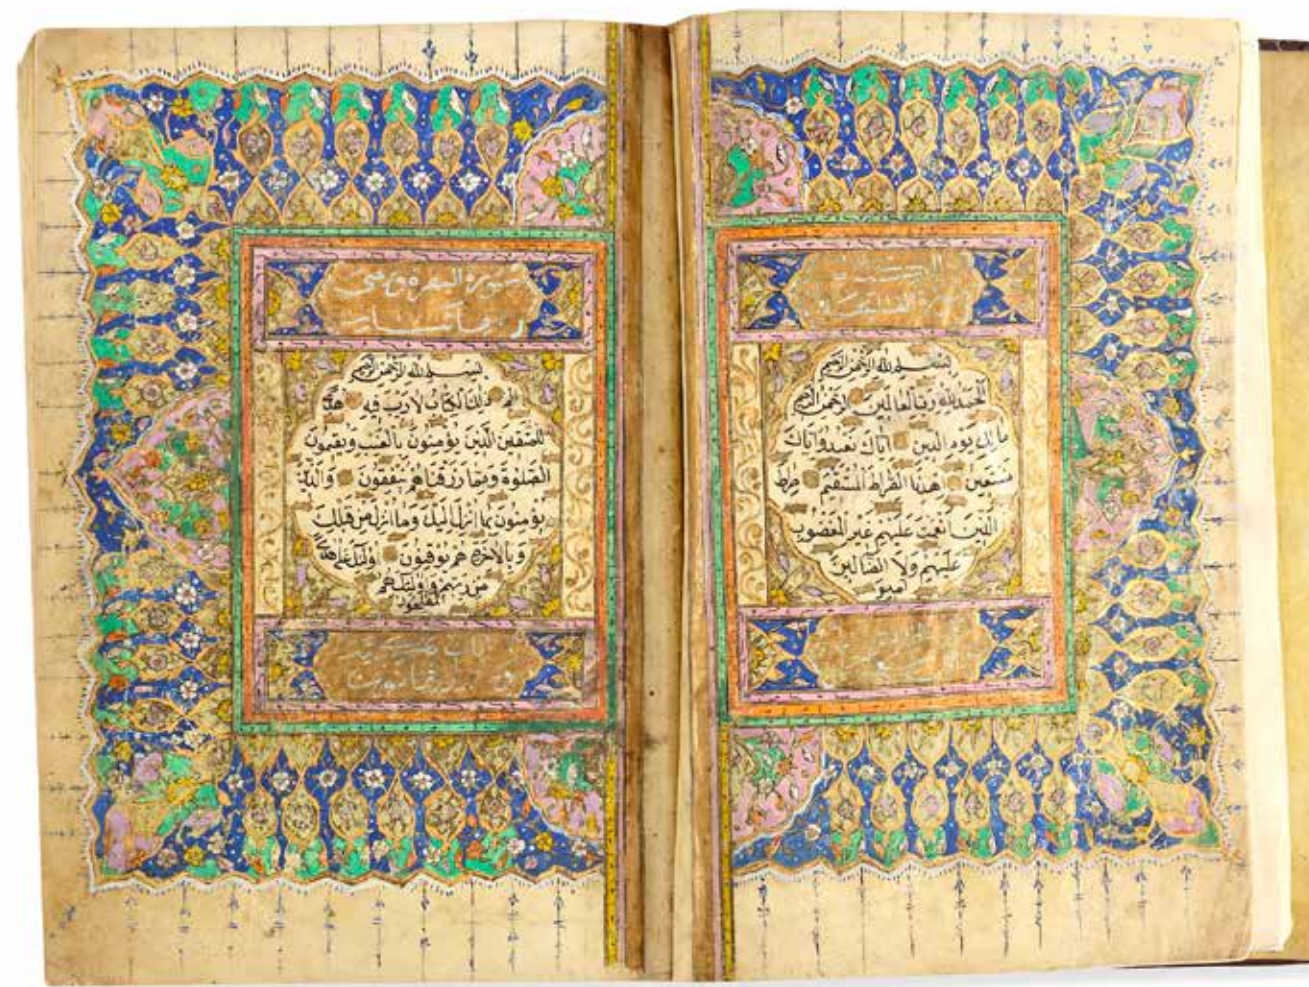 بسم الله الرحمن الرحيم
الحمد لله رب العالمين الرحمن الرحيم
مالك يوم الدين اياك نعبد واياك
نستعين اهدنا الصراط المستقيم صراط
الذين انعمت عليهم غير المغضوب
عليهم ولا الضالين
امين
سورة البقرة وهي
بسم الله الرحمن الرحيم
الم ذلك الكتاب لا ريب فيه هدى
للمتقين الذين يؤمنون بالغيب ويقيمون
الصلوة ومما رزقناهم ينفقون والذين
يؤمنون بما انزل اليك وما انزل من قبلك
وبالاخرة هم يوقنون اولئك على هدى
من ربهم واولئك هم
المفلحون